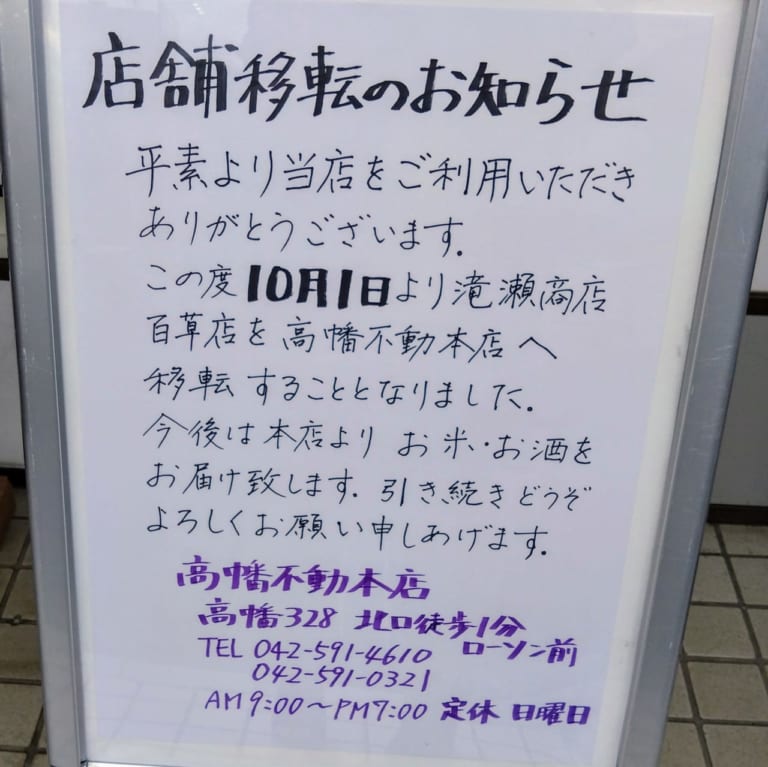 店舗移転のお知らせ
平素より当店をご利用いただき
ありがとうございます.
この度10月1日より滝瀬商店
百草店を高幡不動本店へ
移転することとなりました.
今後は本店より お米・お酒を
お届け致します. 引き続きどうぞ
よろしくお願い申しあげます.
高幡不動本店
高幡328 北口徒歩1分
TEL 042-591-4610 ローソン前
042-591-0321
AM9:00~PM7:00 定休 日曜日